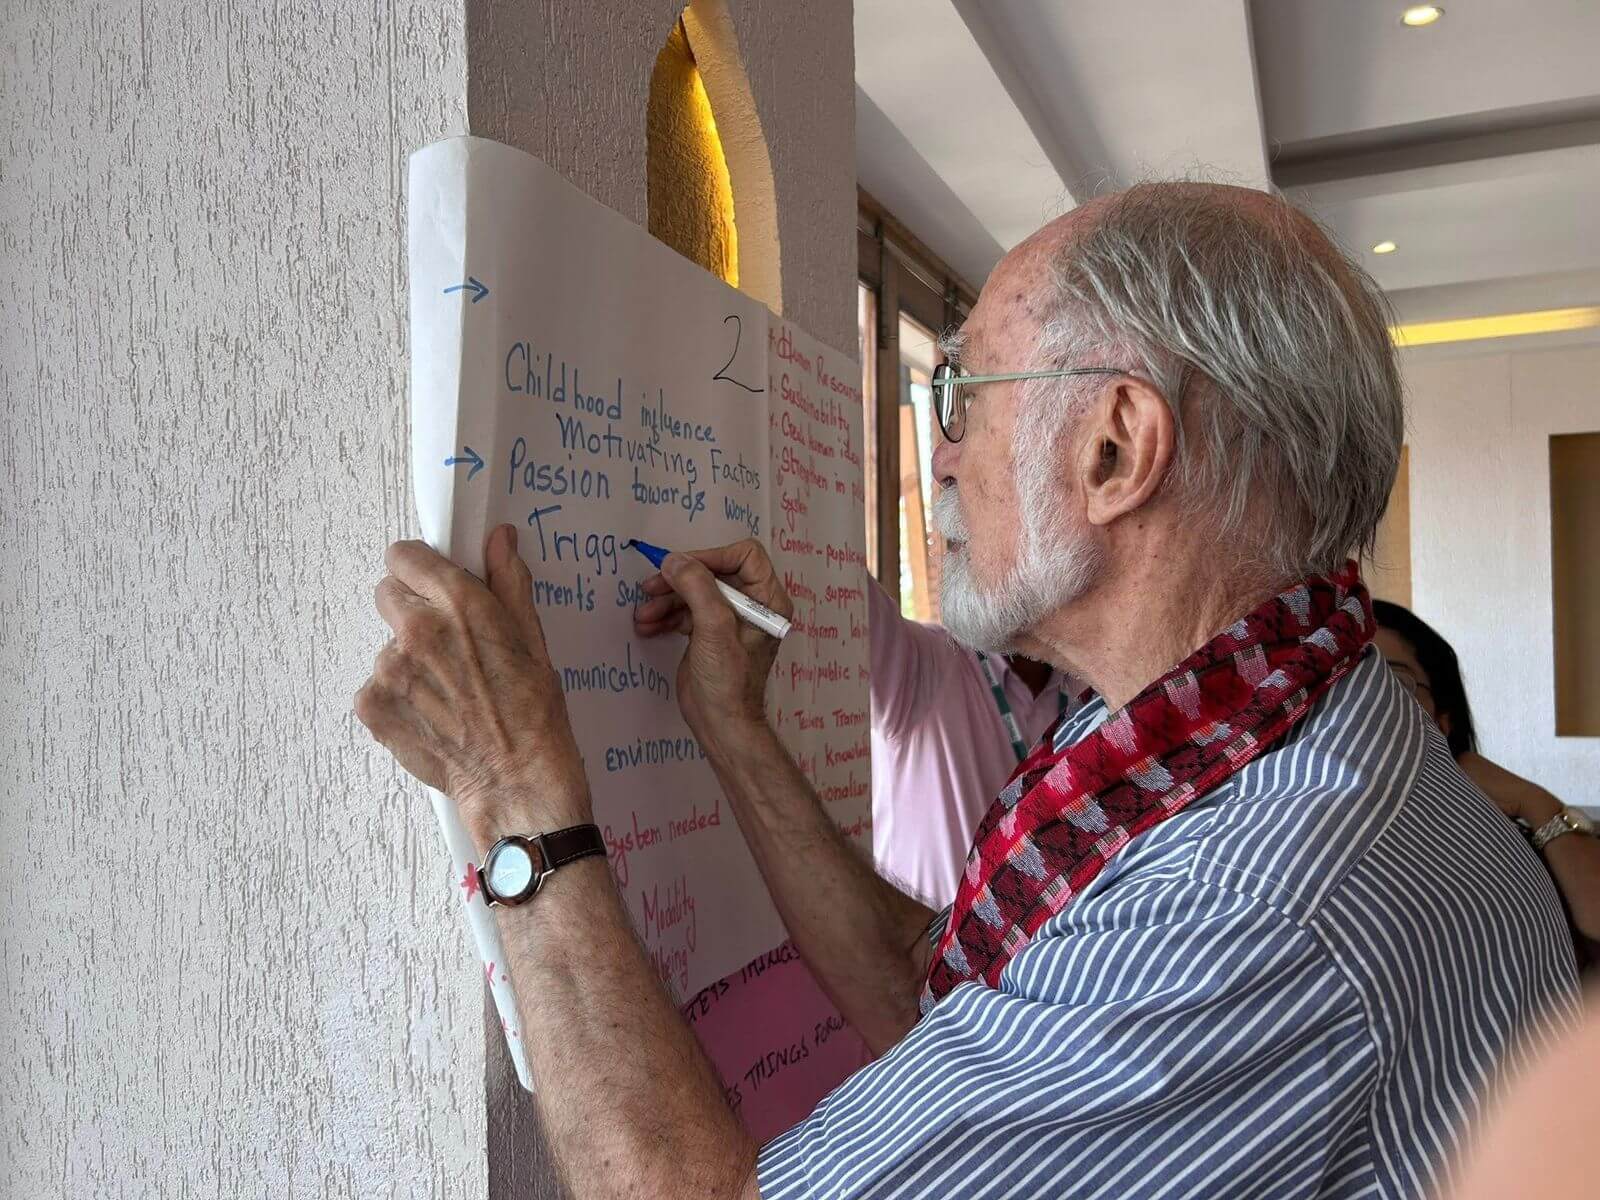 2
Childhood influence
Motivating Factors
Passion towards works
Trigg
rrent's sup
mmunication
enviroment
System needed
Modality
being
* Human Resour
* Sustainability
Human idea
* Strengthen in
System
* Connect - puplic
Mening, support
private/public
Training
Knowledge
sionalism
THINGS
THINGS FORW